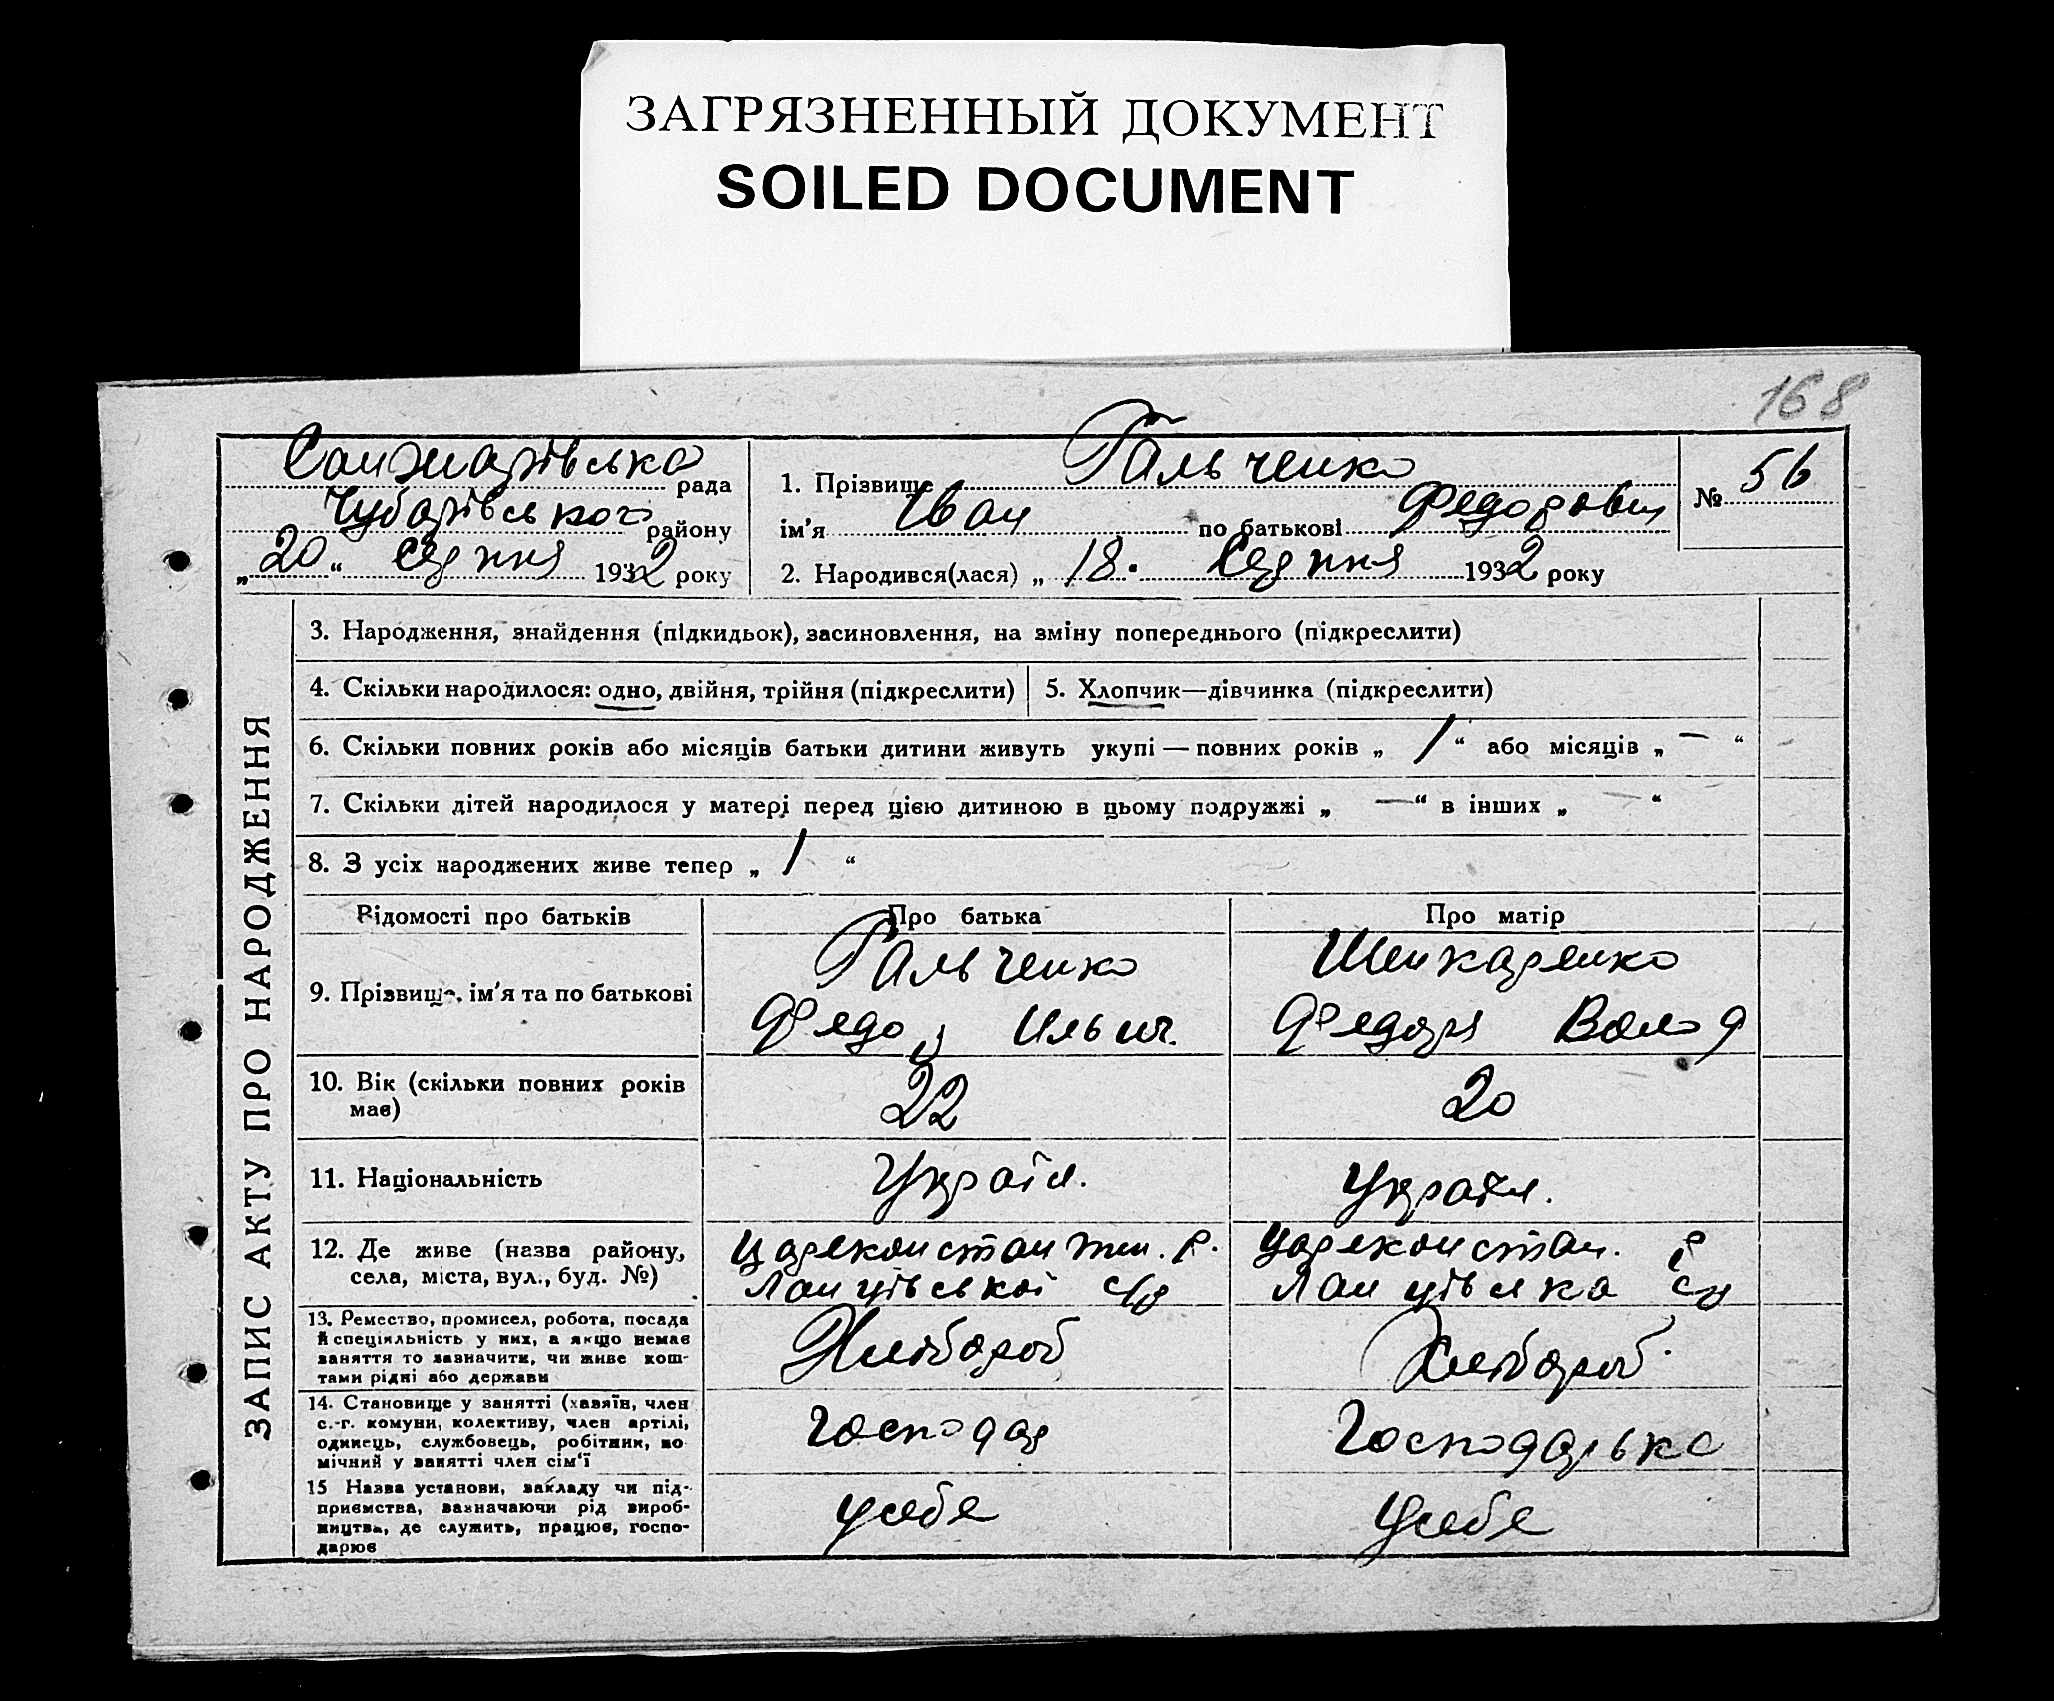 ЗАГРЯЗНЕННЫЙ ДОКУМЕНТ
SOILED DOCUMENT
168
Санжарівська рада
Чубарівського району
„20“ Серпня 1932 року
1. Прізвище Гальченко
ім'я Іван по батькові Федорович
2. Народився(лася) „18. Серпня 1932 року
№ 56
ЗАПИС АКТУ ПРО НАРОДЖЕННЯ
3. Народження, знайдення (підкидьок), засиновлення, на зміну попереднього (підкреслити)
4. Скільки народилося: одно, двійня, трійня (підкреслити)
5. Хлопчик—дівчинка (підкреслити)
6. Скільки повних років або місяців батьки дитини живуть укупі — повних років „ 1 “ або місяців „ — “
7. Скільки дітей народилося у матері перед цією дитиною в цьому подружжі „ — “ в інших „ — “
8. З усіх народжених живе тепер „ 1 “
Відомості про батьків
Про батька
Про матір
9. Прізвище, ім'я та по батькові
Гальченко
Федор Ильич.
Шенкаренко
Федора Волод
10. Вік (скільки повних років
має)
22
20
11. Національність
Україн.
Україн.
12. Де живе (назва району,
села, міста, вул., буд. №)
Царекон стан р.
Ланцівської с/р
Царекон стан. р
Ланцівська с/р
13. Ремество, промисел, робота, посада
й спеціяльність у них, а якщо немає
заняття то зазначити, чи живе кош-
тами рідні або держави
Хлібороб
Хлібороб.
14. Становище у занятті (хазяїн, член
с.-г. комуни, колективу, член артілі,
одинець, службовець, робітник, по
мічний у занятті член сім'ї
Господар
Господарька
15 Назва установи, закладу чи під-
приємства, зазначаючи рід вироб-
ництва, де служить, працює, госпо-
дарює
у себе
У себе